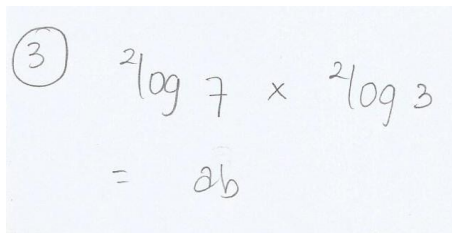 3 ²log 7 × ²log 3
= ab